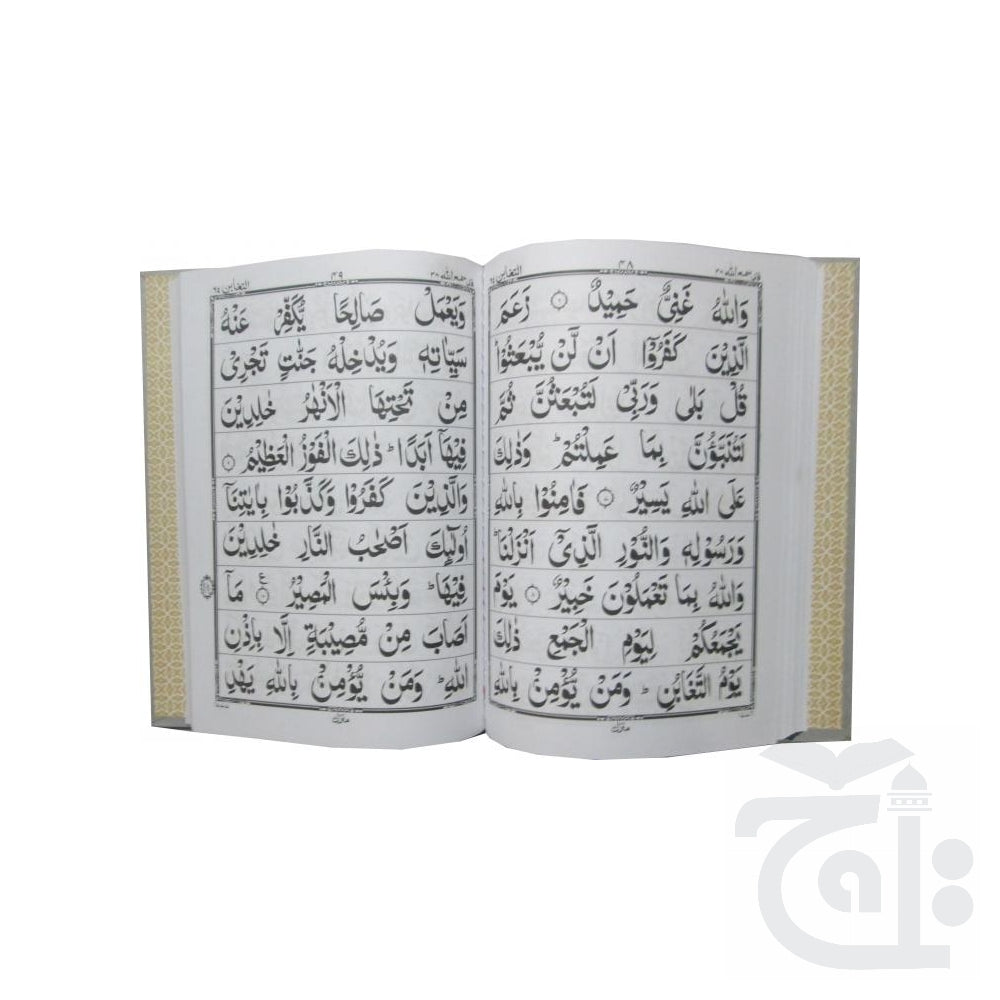 قد سمع الله ٢٨
٤٨
التغابن ٦٤
وَاللّٰهُ غَنِیٌّ حَمِیْدٌ ۝۶ زَعَمَ
الَّذِیْنَ كَفَرُوْۤا اَنْ لَّنْ یُّبْعَثُوْا ؕ
قُلْ بَلٰی وَرَبِّیْ لَتُبْعَثُنَّ ثُمَّ
لَتُنَبَّؤُنَّ بِمَا عَمِلْتُمْ ؕ وَذٰلِكَ
عَلَی اللّٰهِ یَسِیْرٌ ۝۷ فَاٰمِنُوْا بِاللّٰهِ
وَرَسُوْلِهٖ وَالنُّوْرِ الَّذِیْۤ اَنْزَلْنَا ؕ
وَاللّٰهُ بِمَا تَعْمَلُوْنَ خَبِیْرٌ ۝۸ یَوْمَ
یَجْمَعُكُمْ لِیَوْمِ الْجَمْعِ ذٰلِكَ
یَوْمُ التَّغَابُنِ ؕ وَمَنْ یُّؤْمِنْۢ بِاللّٰهِ
منزل
قد سمع الله ٢٨
٤٩
التغابن ٦٤
وَیَعْمَلْ صَالِحًا یُّكَفِّرْ عَنْهُ
سَیِّاٰتِهٖ وَیُدْخِلْهُ جَنّٰتٍ تَجْرِیْ
مِنْ تَحْتِهَا الْاَنْهٰرُ خٰلِدِیْنَ
فِیْهَاۤ اَبَدًا ؕ ذٰلِكَ الْفَوْزُ الْعَظِیْمُ ۝۹
وَالَّذِیْنَ كَفَرُوْا وَكَذَّبُوْا بِاٰیٰتِنَاۤ
اُولٰٓئِكَ اَصْحٰبُ النَّارِ خٰلِدِیْنَ
فِیْهَا ؕ وَبِئْسَ الْمَصِیْرُ ۝۱۰ ع مَاۤ
اَصَابَ مِنْ مُّصِیْبَةٍ اِلَّا بِاِذْنِ
اللّٰهِ ؕ وَمَنْ یُّؤْمِنْۢ بِاللّٰهِ یَهْدِ
منزل